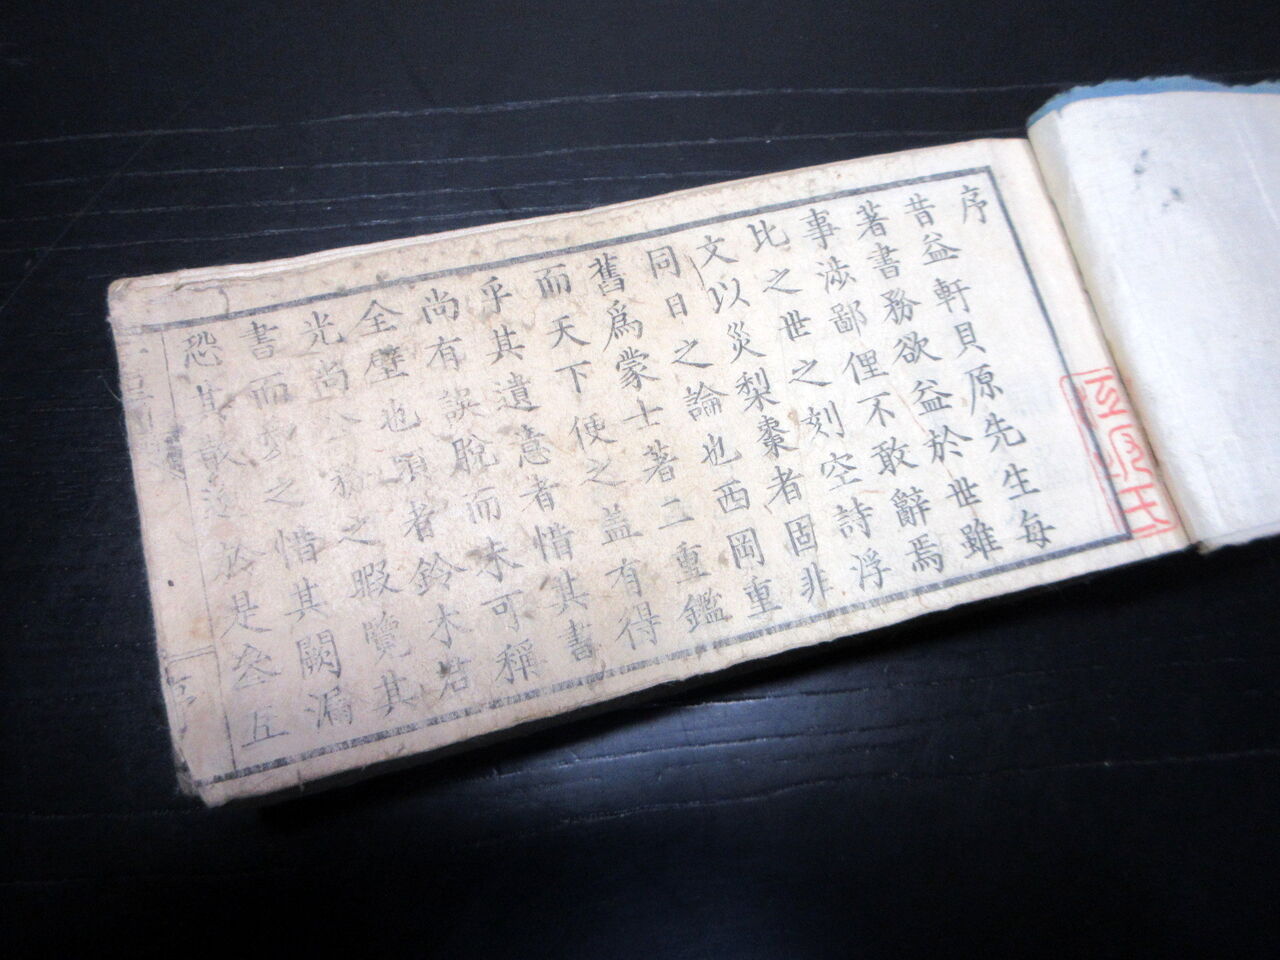 序
昔益軒貝原先生每
著書務欲益於世雖
事涉鄙俚不敢辭焉
比之世之刻空詩浮
文以災梨棗者固非
同日之論也西岡重
舊為蒙士著二重鑑
而天下便之盖有得
乎其遺意者惜其書
尚有誤脫而未可稱
全璧也頃者鈴木君
光尚公務之暇覽其
書而之惜其闕漏
恐其於是叄五